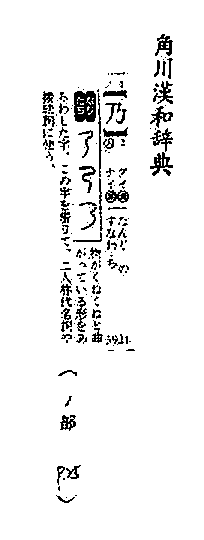 角川漢和辞典
乃
ダイ
ナイ
なんじ の
すなわち
物がくねくねと曲
がっている形をあ
らわした字。この字を借りて、二人称代名詞や
接続詞に使う。
(ノ部 P.25)